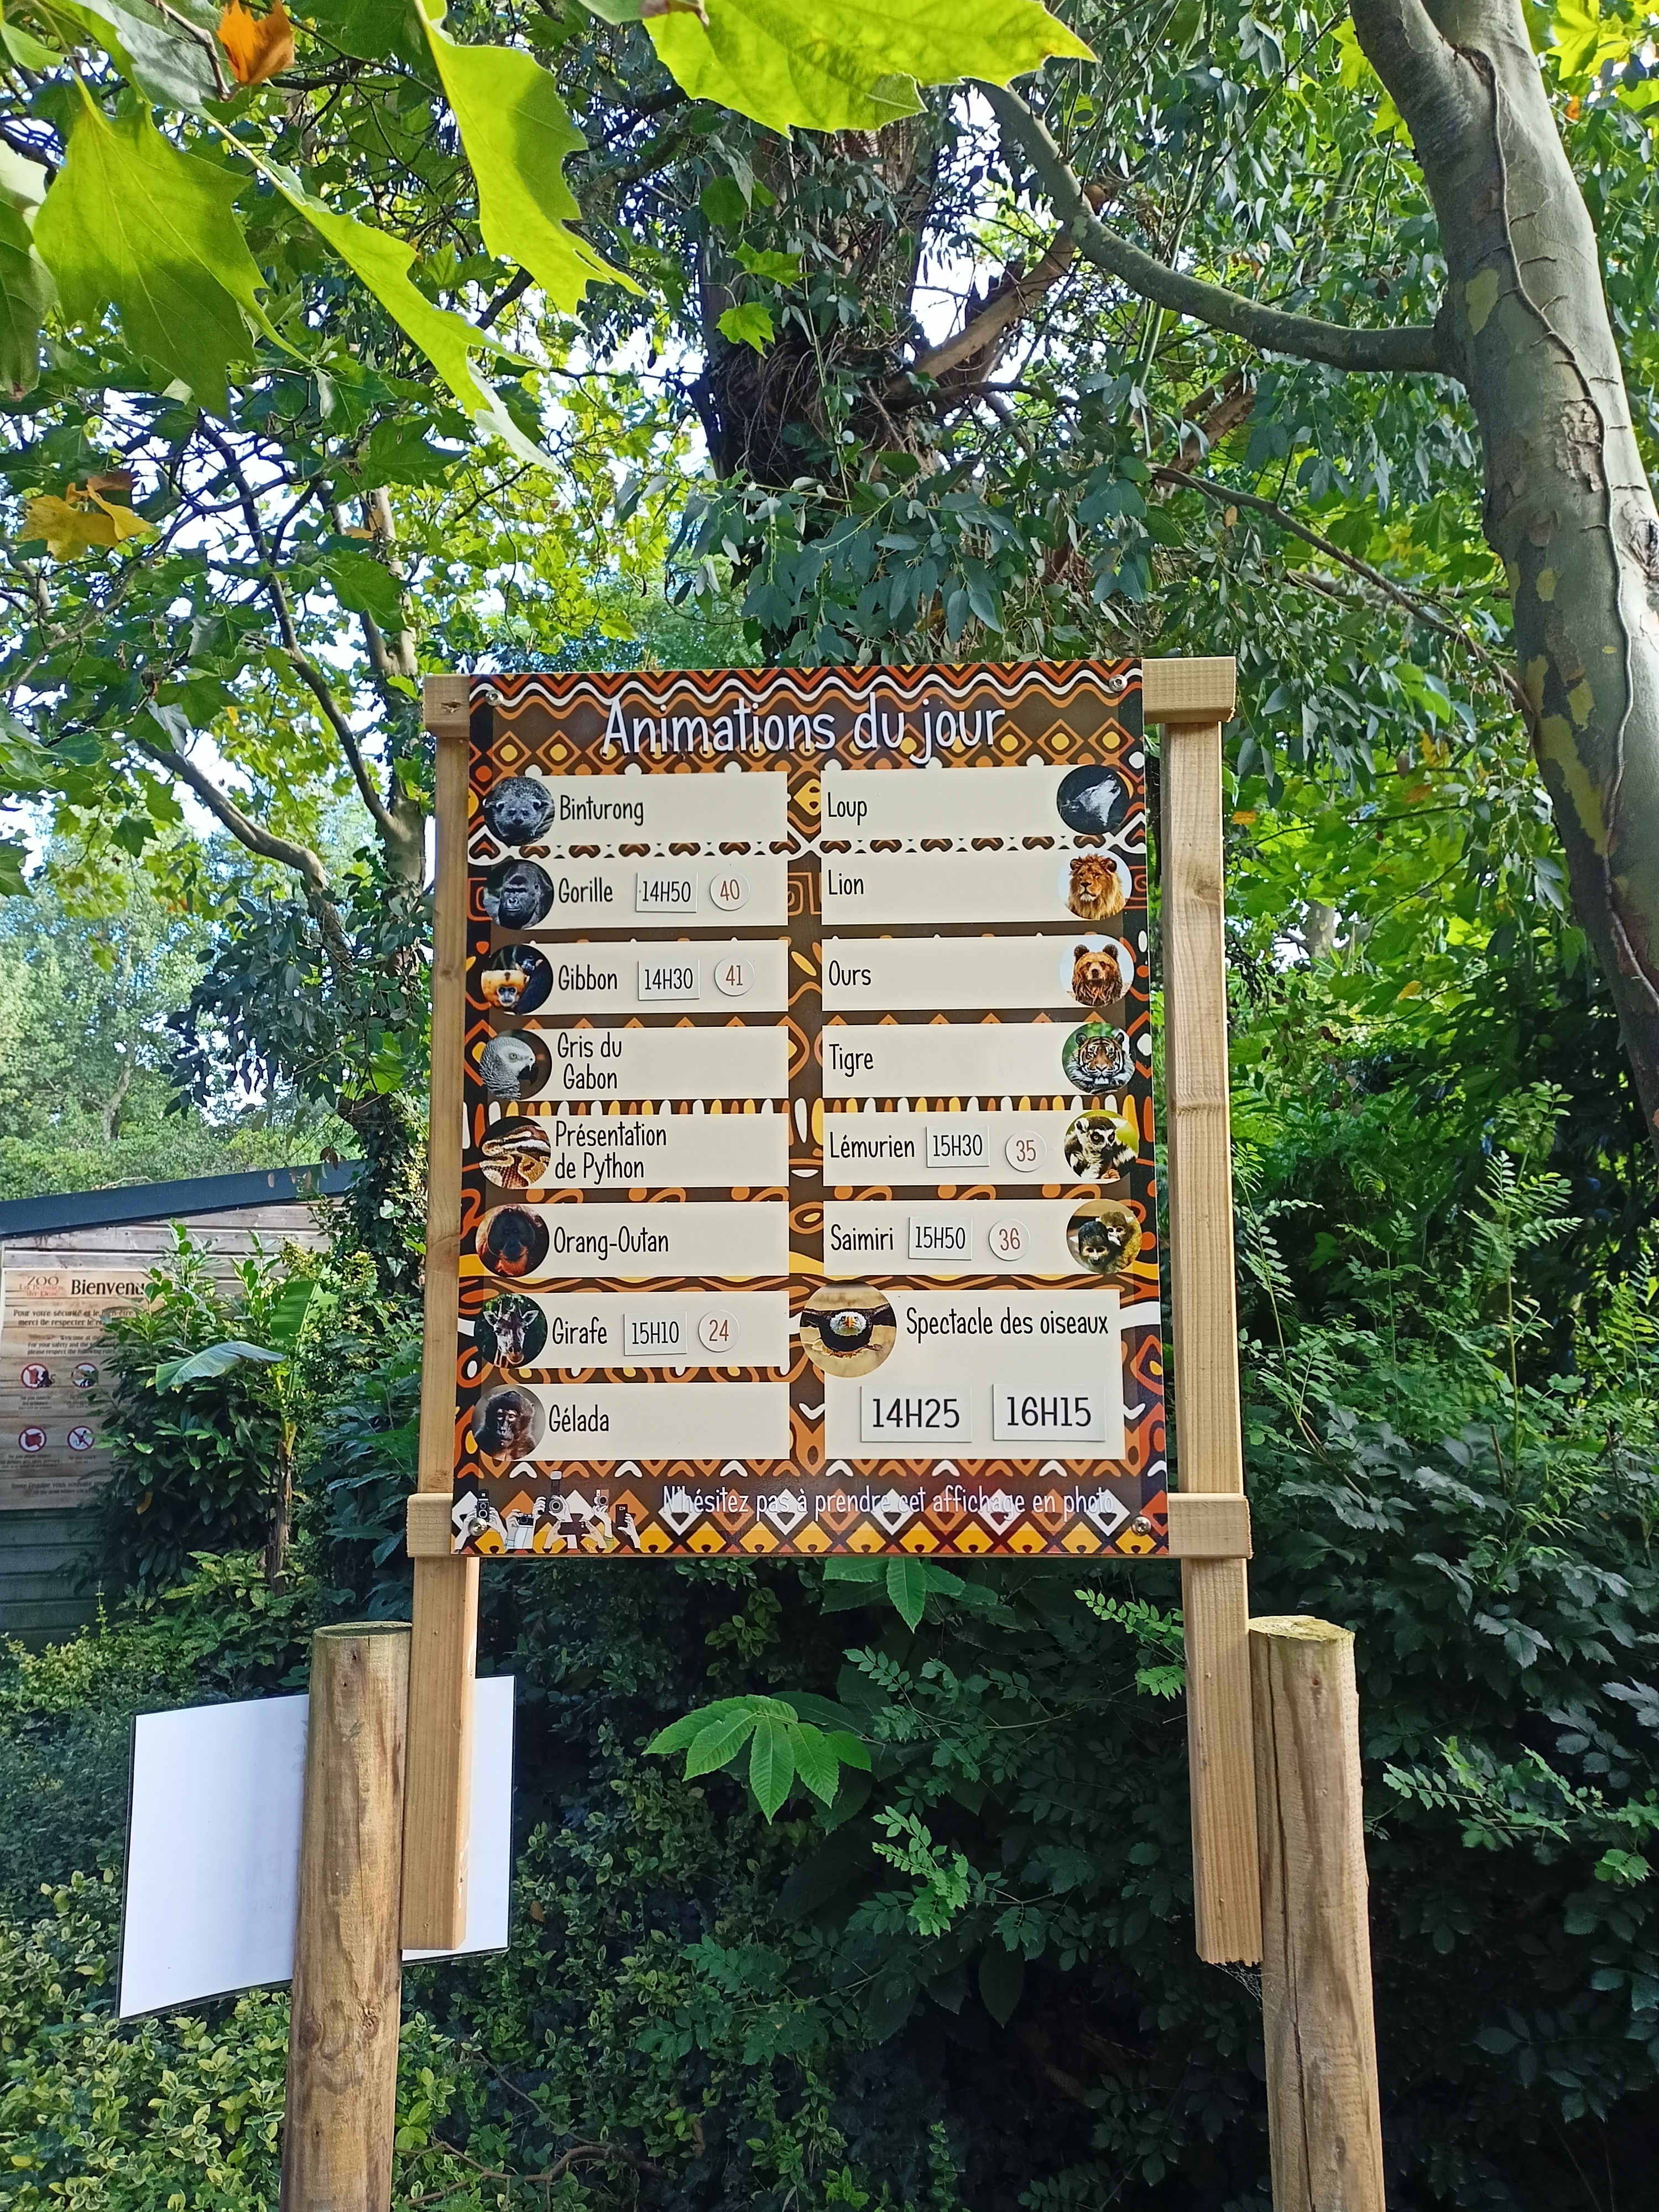 Animations du jour
Binturong
Gorille 14H50 40
Gibbon 14H30 41
Gris du
Gabon
Présentation
de Python
Orang-Outan
Girafe 15H10 24
Gélada
Loup
Lion
Ours
Tigre
Lémurien 15H30 35
Saimiri 15H50 36
Spectacle des oiseaux
14H25 16H15
N'hésitez pas à prendre cet affichage en photo
ZOO
Bienvenu
Pour votre sécurité et le
merci de respecter le